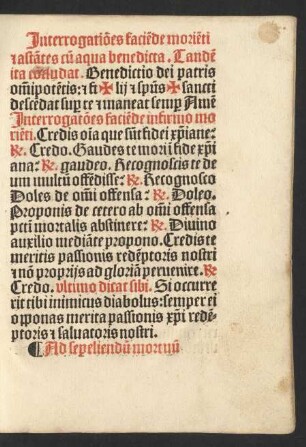 Interrogatiões faciẽde moriẽti
⁊ astãtes cũ aqua benedicta. Tandẽ
ita cõcludat. Benedictio dei patris
om̃ipotẽtis: ⁊ fi✠lij ⁊ sp̃us✠sancti
descẽdat sup̲ te ⁊ maneat semp̲ Amẽ
Interrogatões faciẽde infirmo mo
riẽti. Credis oĩa que sũt fidei xp̃iane:
℟. Credo. Gaudes te mori ĩ fide xp̃i
ana: ℟. gaudeo. Recognoscis te de
um multũ offẽdisse: ℟. Recognosco
Doles de om̃i offensa: ℟. Doleo.
Proponis de cetero ab om̃i offensa
pctĩ mortalis abstinere: ℟. Diuino
auxilio mediãte propono. Credis te
meritis passionis redẽptoris nostri
⁊ nõ proprijs ad gloriã peruenire. ℟
Credo. vltimo dicat sibi. Si occurre
rit tibi inimicus diabolus: semper ei
opponas merita passionis xp̃i redẽ
ptoris ⁊ saluatoris nostri.
¶ Ad sepeliendũ mortuũ